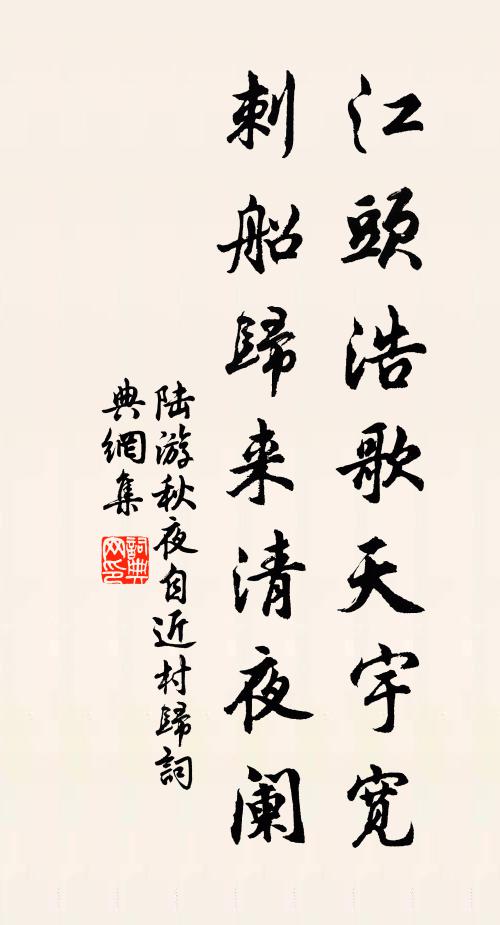 江頭浩歌天宇寬
刺船歸来清夜阑
陆游秋夜自近村歸詞
典網集
詞典網印